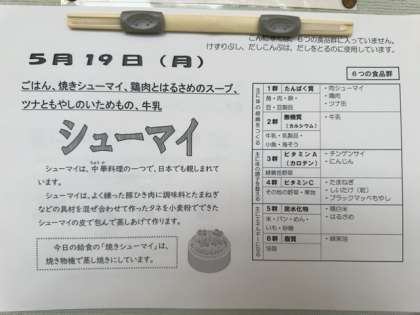 こんだては、6つの食品群に入っていません。
けずりぶし、だしこんぶは、だしをとるのに使用しています。
5月19日(月)
ごはん、焼きシューマイ、鶏肉とはるさめのスープ、
ツナともやしのいためもの、牛乳
シューマイ
シューマイは、中華料理の一つで、日本でも親しまれて
います。
シューマイは、よく練った豚ひき肉に調味料とたまねぎ
などの具材を混ぜ合わせて作ったタネを小麦粉でできた
シューマイの皮で包んで蒸しあげて作ります。
今日の給食の「焼きシューマイ」は、
焼き物機で蒸し焼きにしています。
6つの食品群
1群 たんぱく質
魚・肉・卵・
豆・豆製品
・肉シューマイ
・鶏肉
・ツナ缶
2群 無機質
(カルシウム)
牛乳・乳製品・
小魚・海そう
・牛乳
3群 ビタミンA
(カロテン)
緑黄色野菜
・チンゲンサイ
・にんじん
4群 ビタミンC
その他の野菜・果物
・たまねぎ
・しいたけ(乾)
・ブラックマッペもやし
5群 炭水化物
米・パン・めん・
いも・砂糖
・精白米
・はるさめ
6群 脂質
油脂
・綿実油